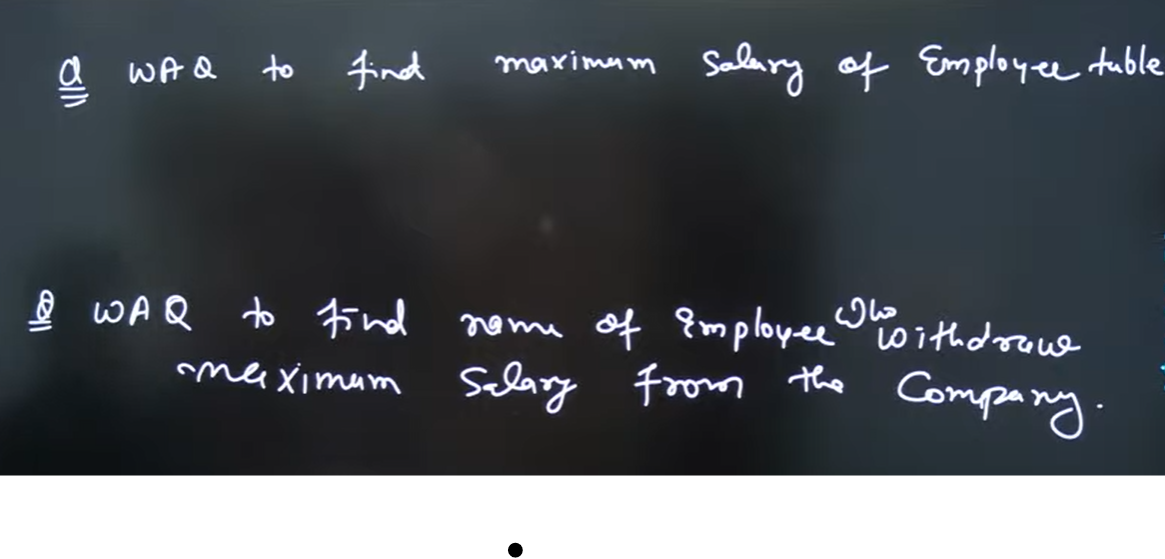 Q WAQ to find maximum Salary of Employee table
Q WAQ to find name of Employee who withdraw
maximum Salary from the Company.